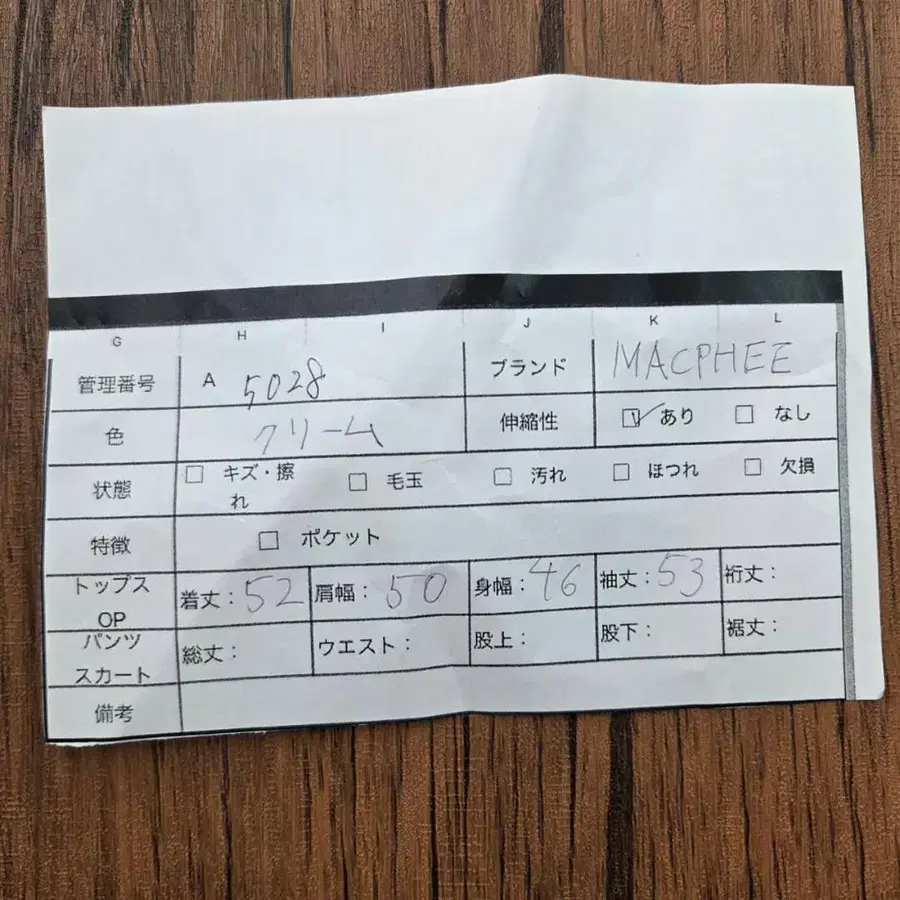 G H I J K L
管理番号 A 5028 ブランド MACPHEE
色 クリーム 伸縮性 ☑ あり ☐ なし
状態 ☐ キズ・擦れ ☐ 毛玉 ☐ 汚れ ☐ ほつれ ☐ 欠損
特徴 ☐ ポケット
トップス OP 着丈：52 肩幅：50 身幅：46 袖丈：53 裄丈：
パンツ スカート 総丈： ウエスト： 股上： 股下： 裾丈：
備考